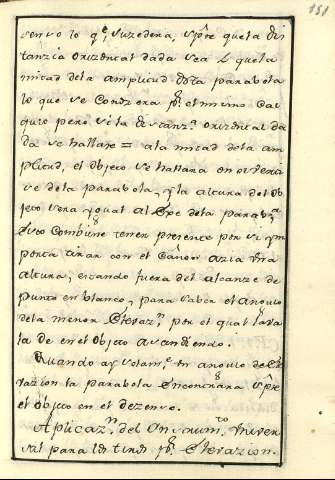 151
censo lo qe. Suzedera, spre. que la dis
tanzia orizontal dada sea L que la
mitad dela amplitud dela parabola
lo que se condzera pr. el mismo Cal
quio pero si la distanza. orizontal da
da se hallare = ala mitad dela am
plitud, el objeto se hallara en
se dela parabola, y la altura del ob
jeto sera ygual al Exe dela parabola.
Esto Conbiene tener presente por si ym
porta tirar con el Cañon azia Una
altura, estando fuera del alcanze de
punto en blanco, para saber el angulo
dela menor Elevazn. por el qual la va
la de en el objeto azendiendo.
Quando ay solame. un angulo de Ele
vazion la parabola Encontrara spre.
el objeto en el dezenso.
Aplicazn. del Ynstrumto. Univer
sal para los tiros pr. Elevazion.